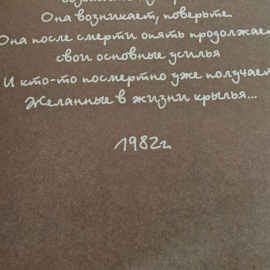 Она возникает, поверьте.
Она после смерти опять продолжает
свои основные усилья
И кто-то посмертно уже получает
Желанные в жизни крылья...
1982г.